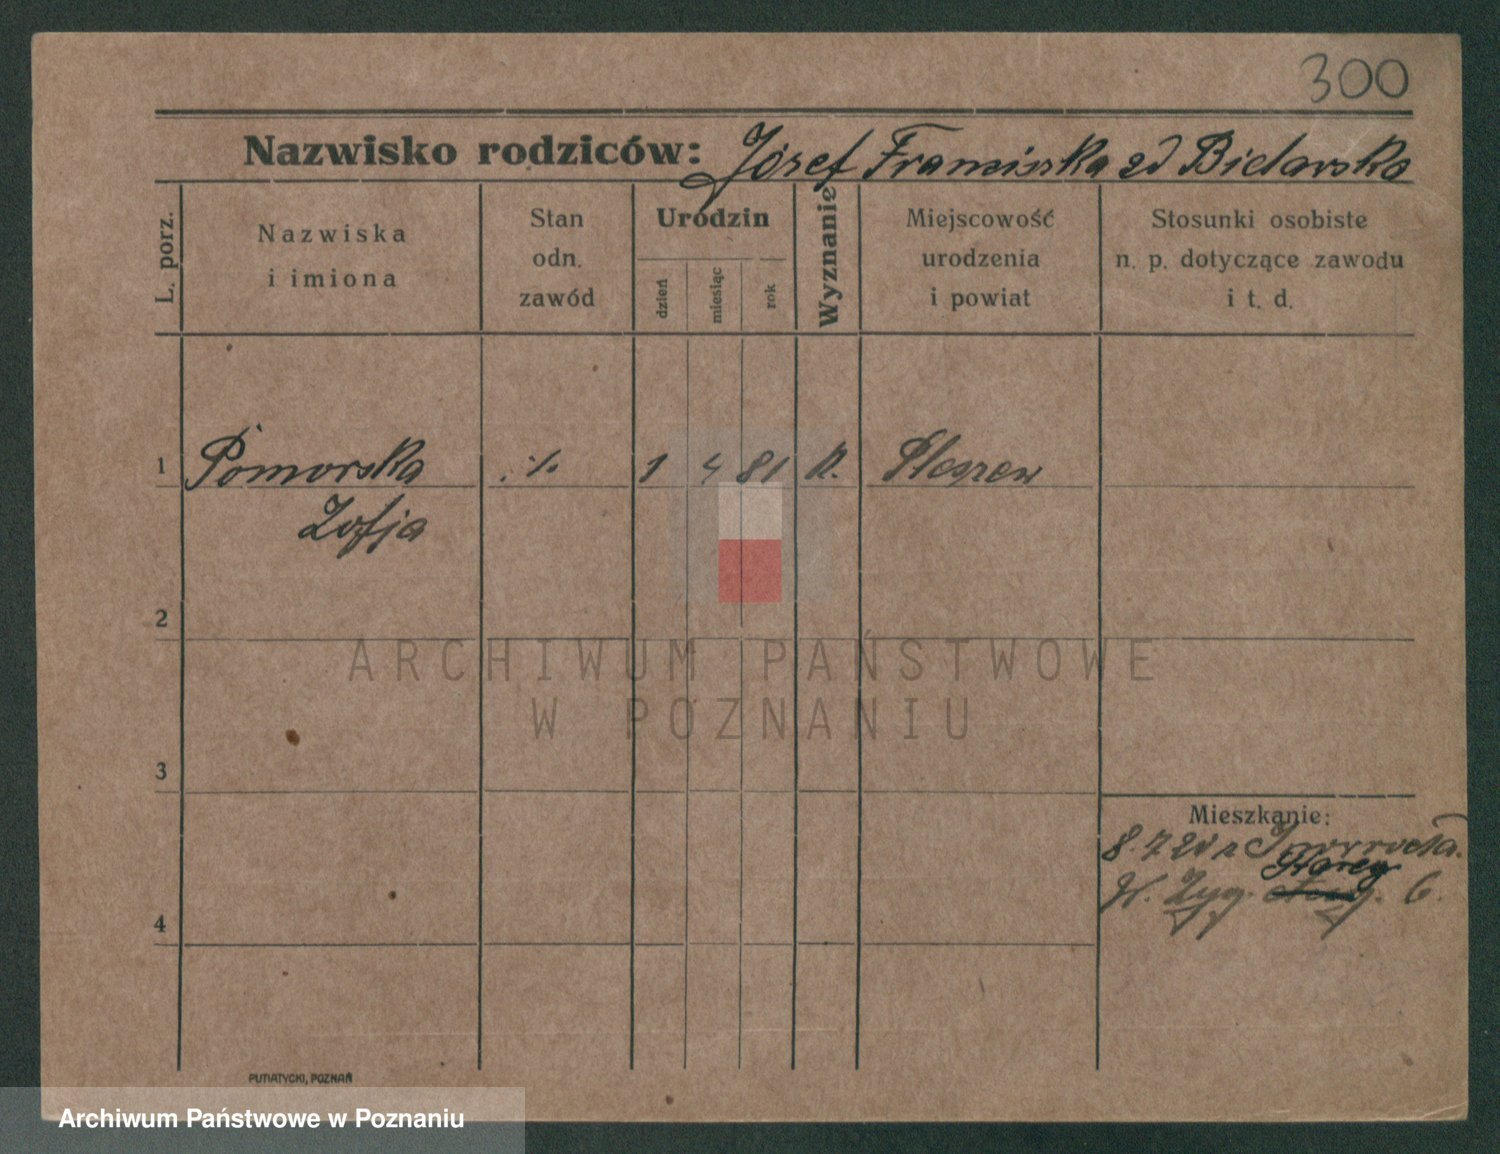 300
Nazwisko rodziców: Józef Franciszka zd Bielawska
L. porz.
Nazwiska
i imiona
Stan
odn.
zawód
Urodzin
dzień
miesiąc
rok
Wyznanie
Miejscowość
urodzenia
i powiat
Stosunki osobiste
n. p. dotyczące zawodu
i t. d.
1 Pomorska ./. 1 4 81 K. Pleszew
Zofja
2
ARCHIWUM PAŃSTWOWE
W POZNANIU
3
Mieszkanie:
8. 7 20 z
Starego
W. Zyg. 6.
4
PUTIATYCKI, POZNAŃ
Archiwum Państwowe w Poznaniu